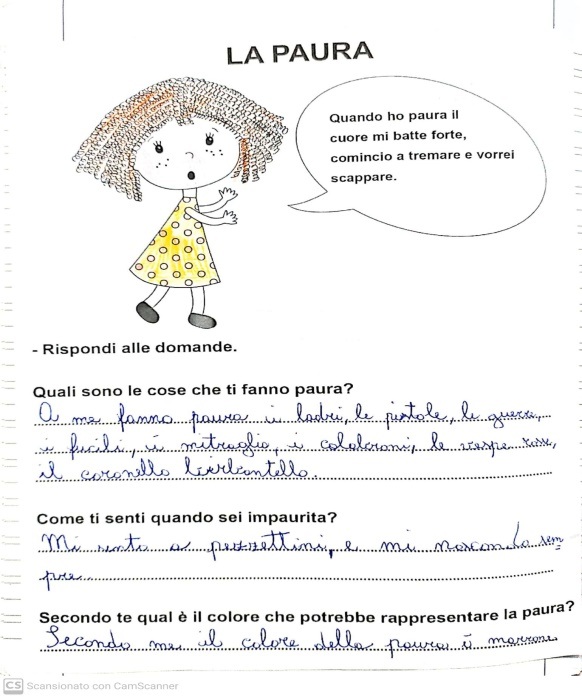 LA PAURA
Quando ho paura il
cuore mi batte forte,
comincio a tremare e vorrei
scappare.
- Rispondi alle domande.
Quali sono le cose che ti fanno paura?
A me fanno paura i ladri, le pistole, le guerre,
i fucili, i mitraglia, i calabroni, le vespe rosse,
il coronello
Come ti senti quando sei impaurita?
Mi sento a pezzettini, e mi nascondo sem
pre.
Secondo te qual è il colore che potrebbe rappresentare la paura?
Secondo me il colore della paura è marrone
CS Scansionato con CamScanner